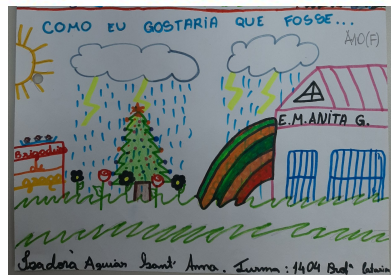 COMO EU GOSTARIA QUE FOSSE...
A10(F)
E.M.ANITA G.
Brigadeiro
de
graça
Isadora Aguiar Sant'Anna. Turma: 1404 Profª